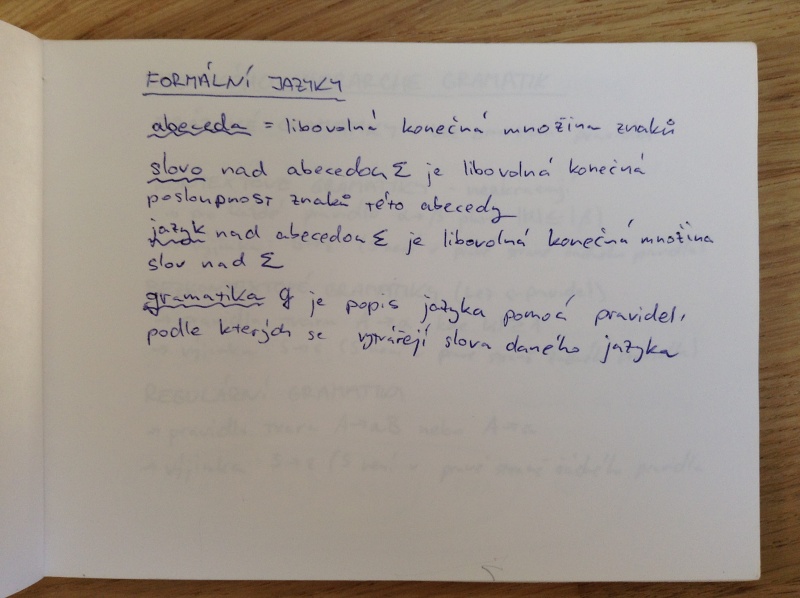 FORMÁLNÍ JAZYKY
abeceda = libovolná konečná množina znaků
slovo nad abecedou Σ je libovolná konečná
posloupnost znaků této abecedy
jazyk nad abecedou Σ je libovolná konečná množina
slov nad Σ
gramatika G je popis jazyka pomocí pravidel,
podle kterých se vytvářejí slova daného jazyka